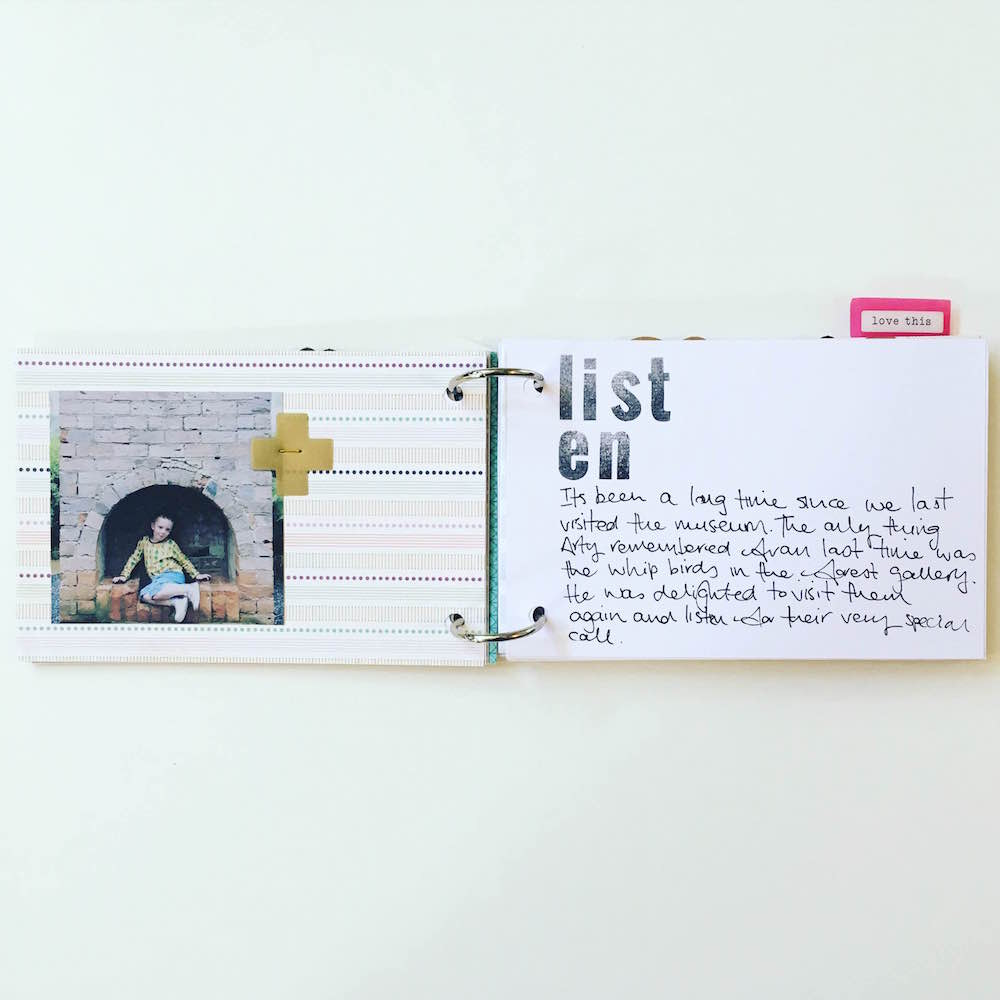 love this
list
en
Its been a long time since we last
visited the museum. The only thing
Arty remembered from last time was
the whip birds in the forest gallery.
He was delighted to visit them
again and listen for their very special
call.